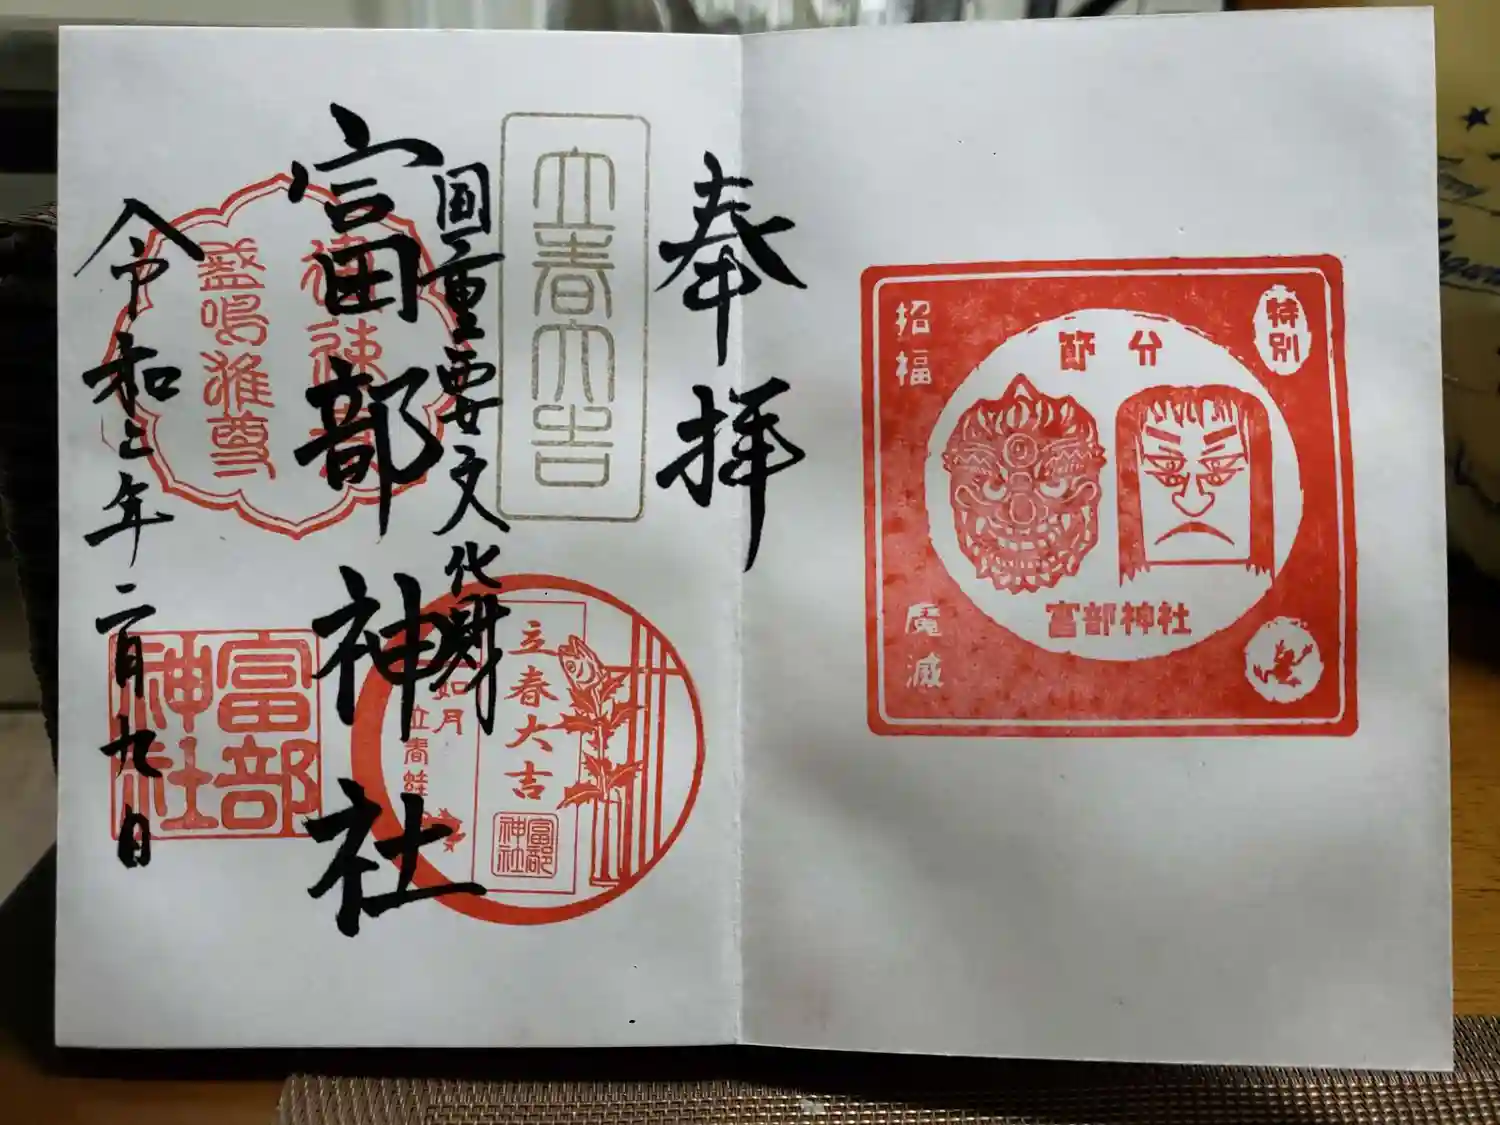 特別
招福
節分
富部神社
魔滅
奉拝
立春大吉
国重要文化財
富部神社
令和二年二月九日
富部神社
立春大吉
如月
立春
富部神社